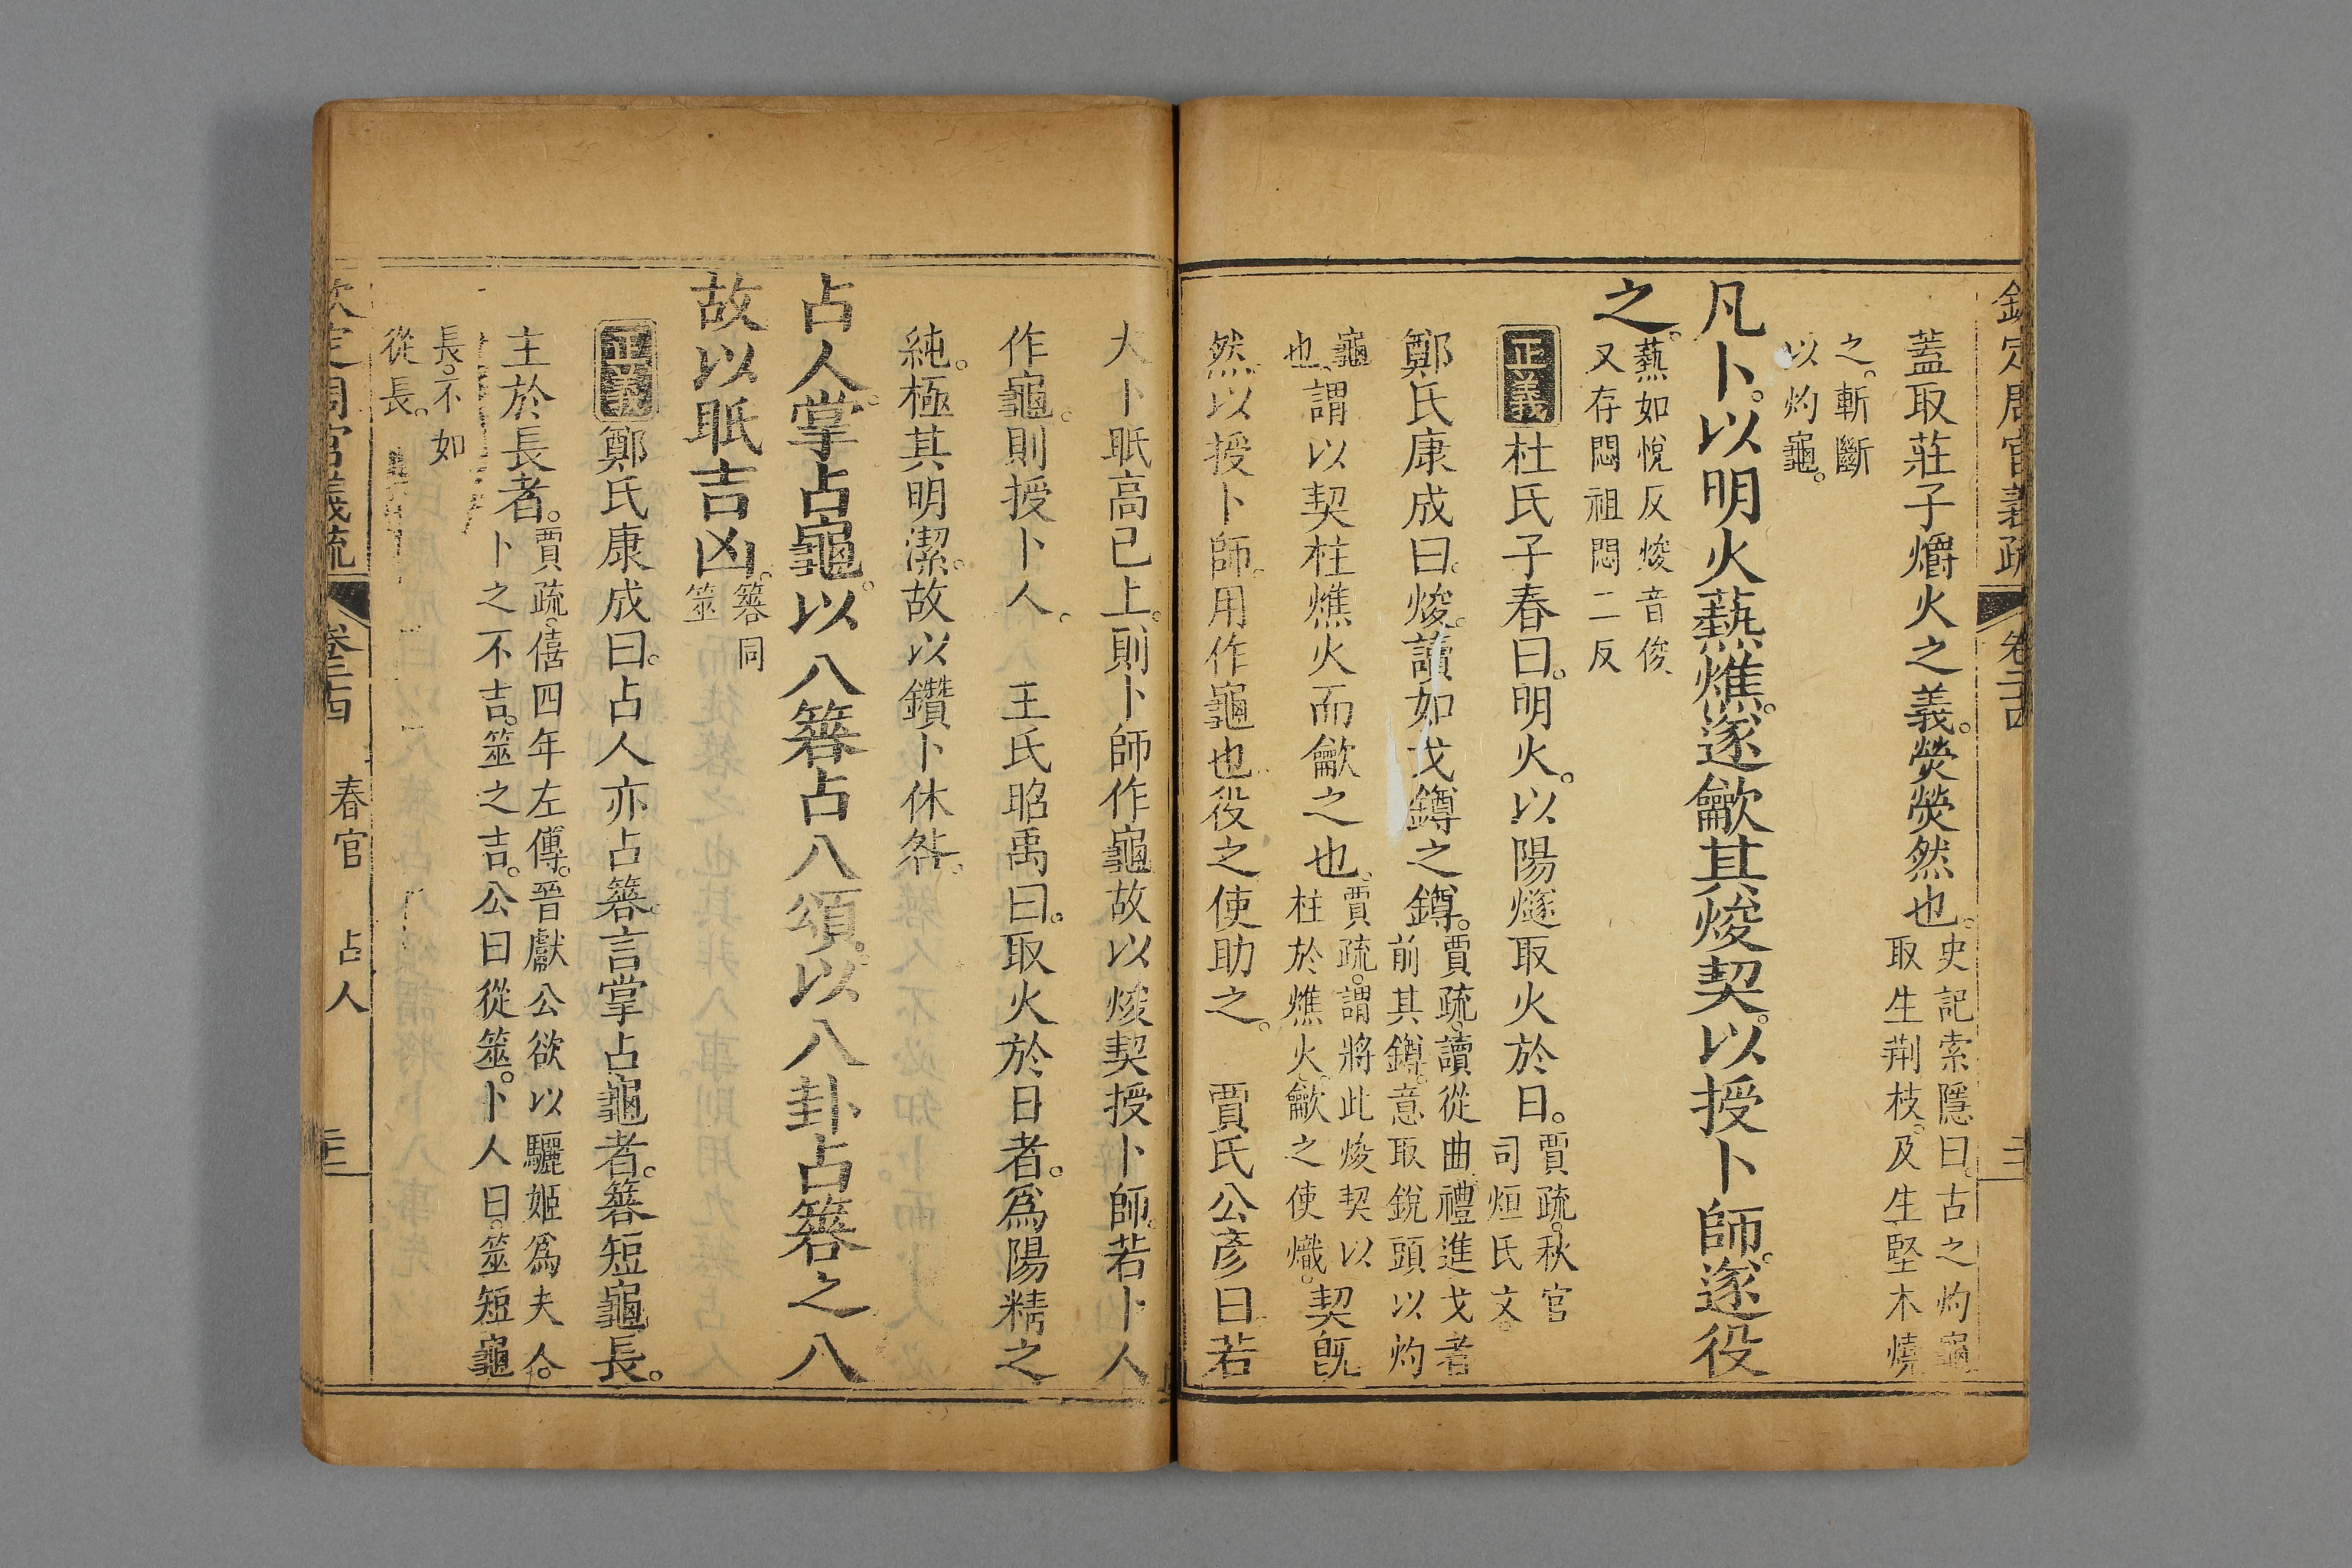 欽定周官義疏 卷二十四
蓋取莊子爝火之義。熒熒然也。史記索隱曰。古之灼龜取生荆枝。及生堅木燒
之。斬斷以灼龜。
凡卜。以明火爇燋。遂龡其焌契。以授卜師。遂役
之。爇如悅反焌音俊又存悶祖悶二反
正義杜氏子春曰。明火。以陽燧取火於日。賈疏。秋官司烜氏文。
鄭氏康成曰。焌。讀如戈鐏之鐏。賈疏。讀從曲禮進戈者前其鐏。意取銳頭以灼
龜也。謂以契柱燋火而龡之也。賈疏。謂將此焌契以柱於燋火。龡之使熾。契旣
然。以授卜師。用作龜也。役之使助之。 賈氏公彥曰若
大卜眡高已上。則卜師作龜故以焌契授卜師。若卜人
作龜。則授卜人。 王氏昭禹曰。取火於日者。爲陽精之
純。極其明潔。故以鑽卜休咎。
占人掌占龜。以八簭占八頌。以八卦占簭之八
故以眡吉凶。簭同筮
正義鄭氏康成曰。占人亦占簭。言掌占龜者。簭短龜長。
主於長者。賈疏。僖四年左傳。晉獻公欲以驪姬爲夫人。卜之不吉。筮之吉。公曰從筮。卜人曰。筮短龜
長。不如從長。
欽定周官義疏 卷三十四 春官 占人